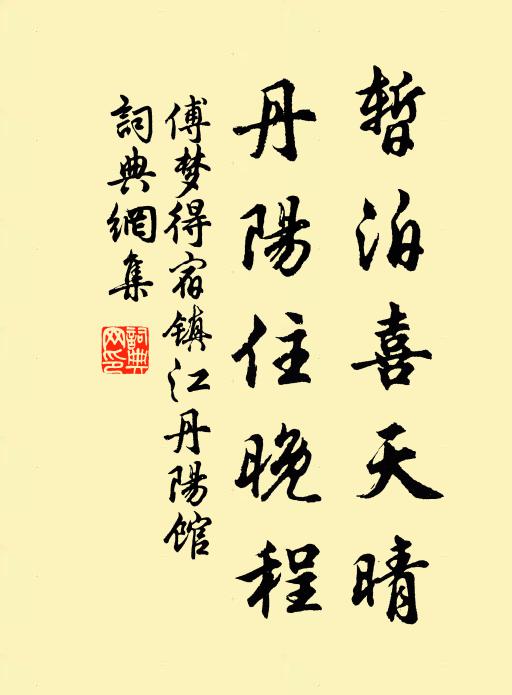 暫泊喜天晴
丹陽住晚程
傅梦得宿镇江丹陽馆
詞典網集
詞典
网印